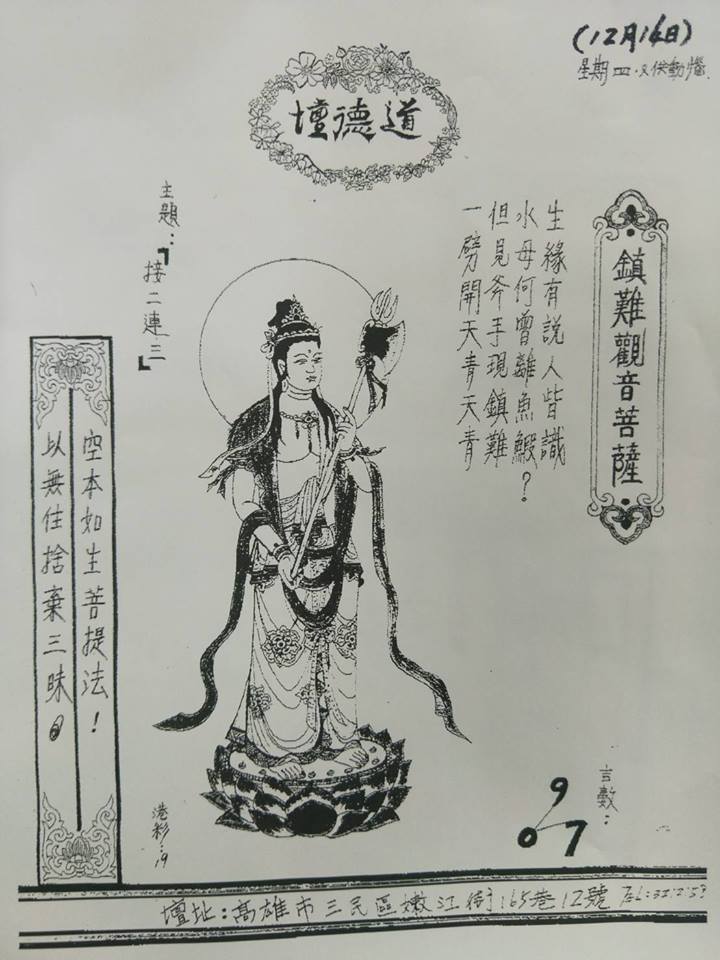 (12月14日)
星期四·只供動腦
道德壇
鎮難觀音菩薩
生緣有說人皆識
水母何曾離魚鰕?
但見斧手現鎮難
一劈開天青天青
主題:「接二連三」
空本如生菩提法!
以無住捨棄三昧。
言數:
9
0 7
港彩:19
壇址:高雄市三民區嫩江街165巷12號